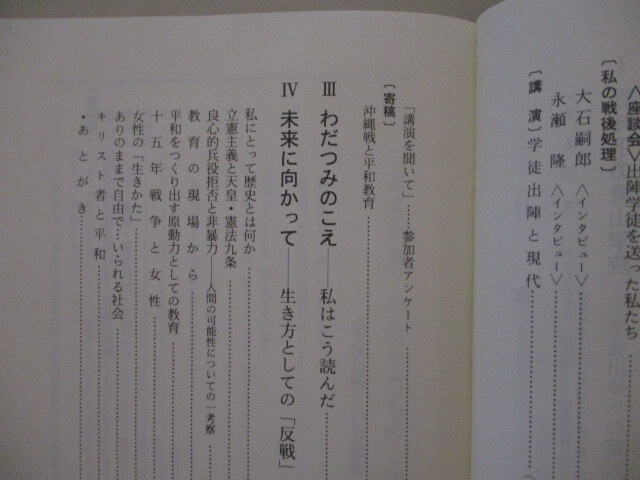 〈座談会〉出陣学徒を送った私たち
〔私の戦後処理〕
大石嗣郎 〈インタビュー〉
永瀬 隆 〈インタビュー〉
〔講 演〕学徒出陣と現代
「講演を聞いて」……参加者アンケート
〔寄稿〕
沖縄戦と平和教育
Ⅲ わだつみのこえ──私はこう読んだ
Ⅳ 未来に向かって──生き方としての「反戦」
私にとって歴史とは何か
立憲主義と天皇・憲法九条
良心的兵役拒否と非暴力──人間の可能性についての一考察
教育の現場から
平和をつくり出す原動力としての教育
十五年戦争と女性
女性の「生きかた」
ありのままで自由で…いられる社会
キリスト者と平和
・あとがき